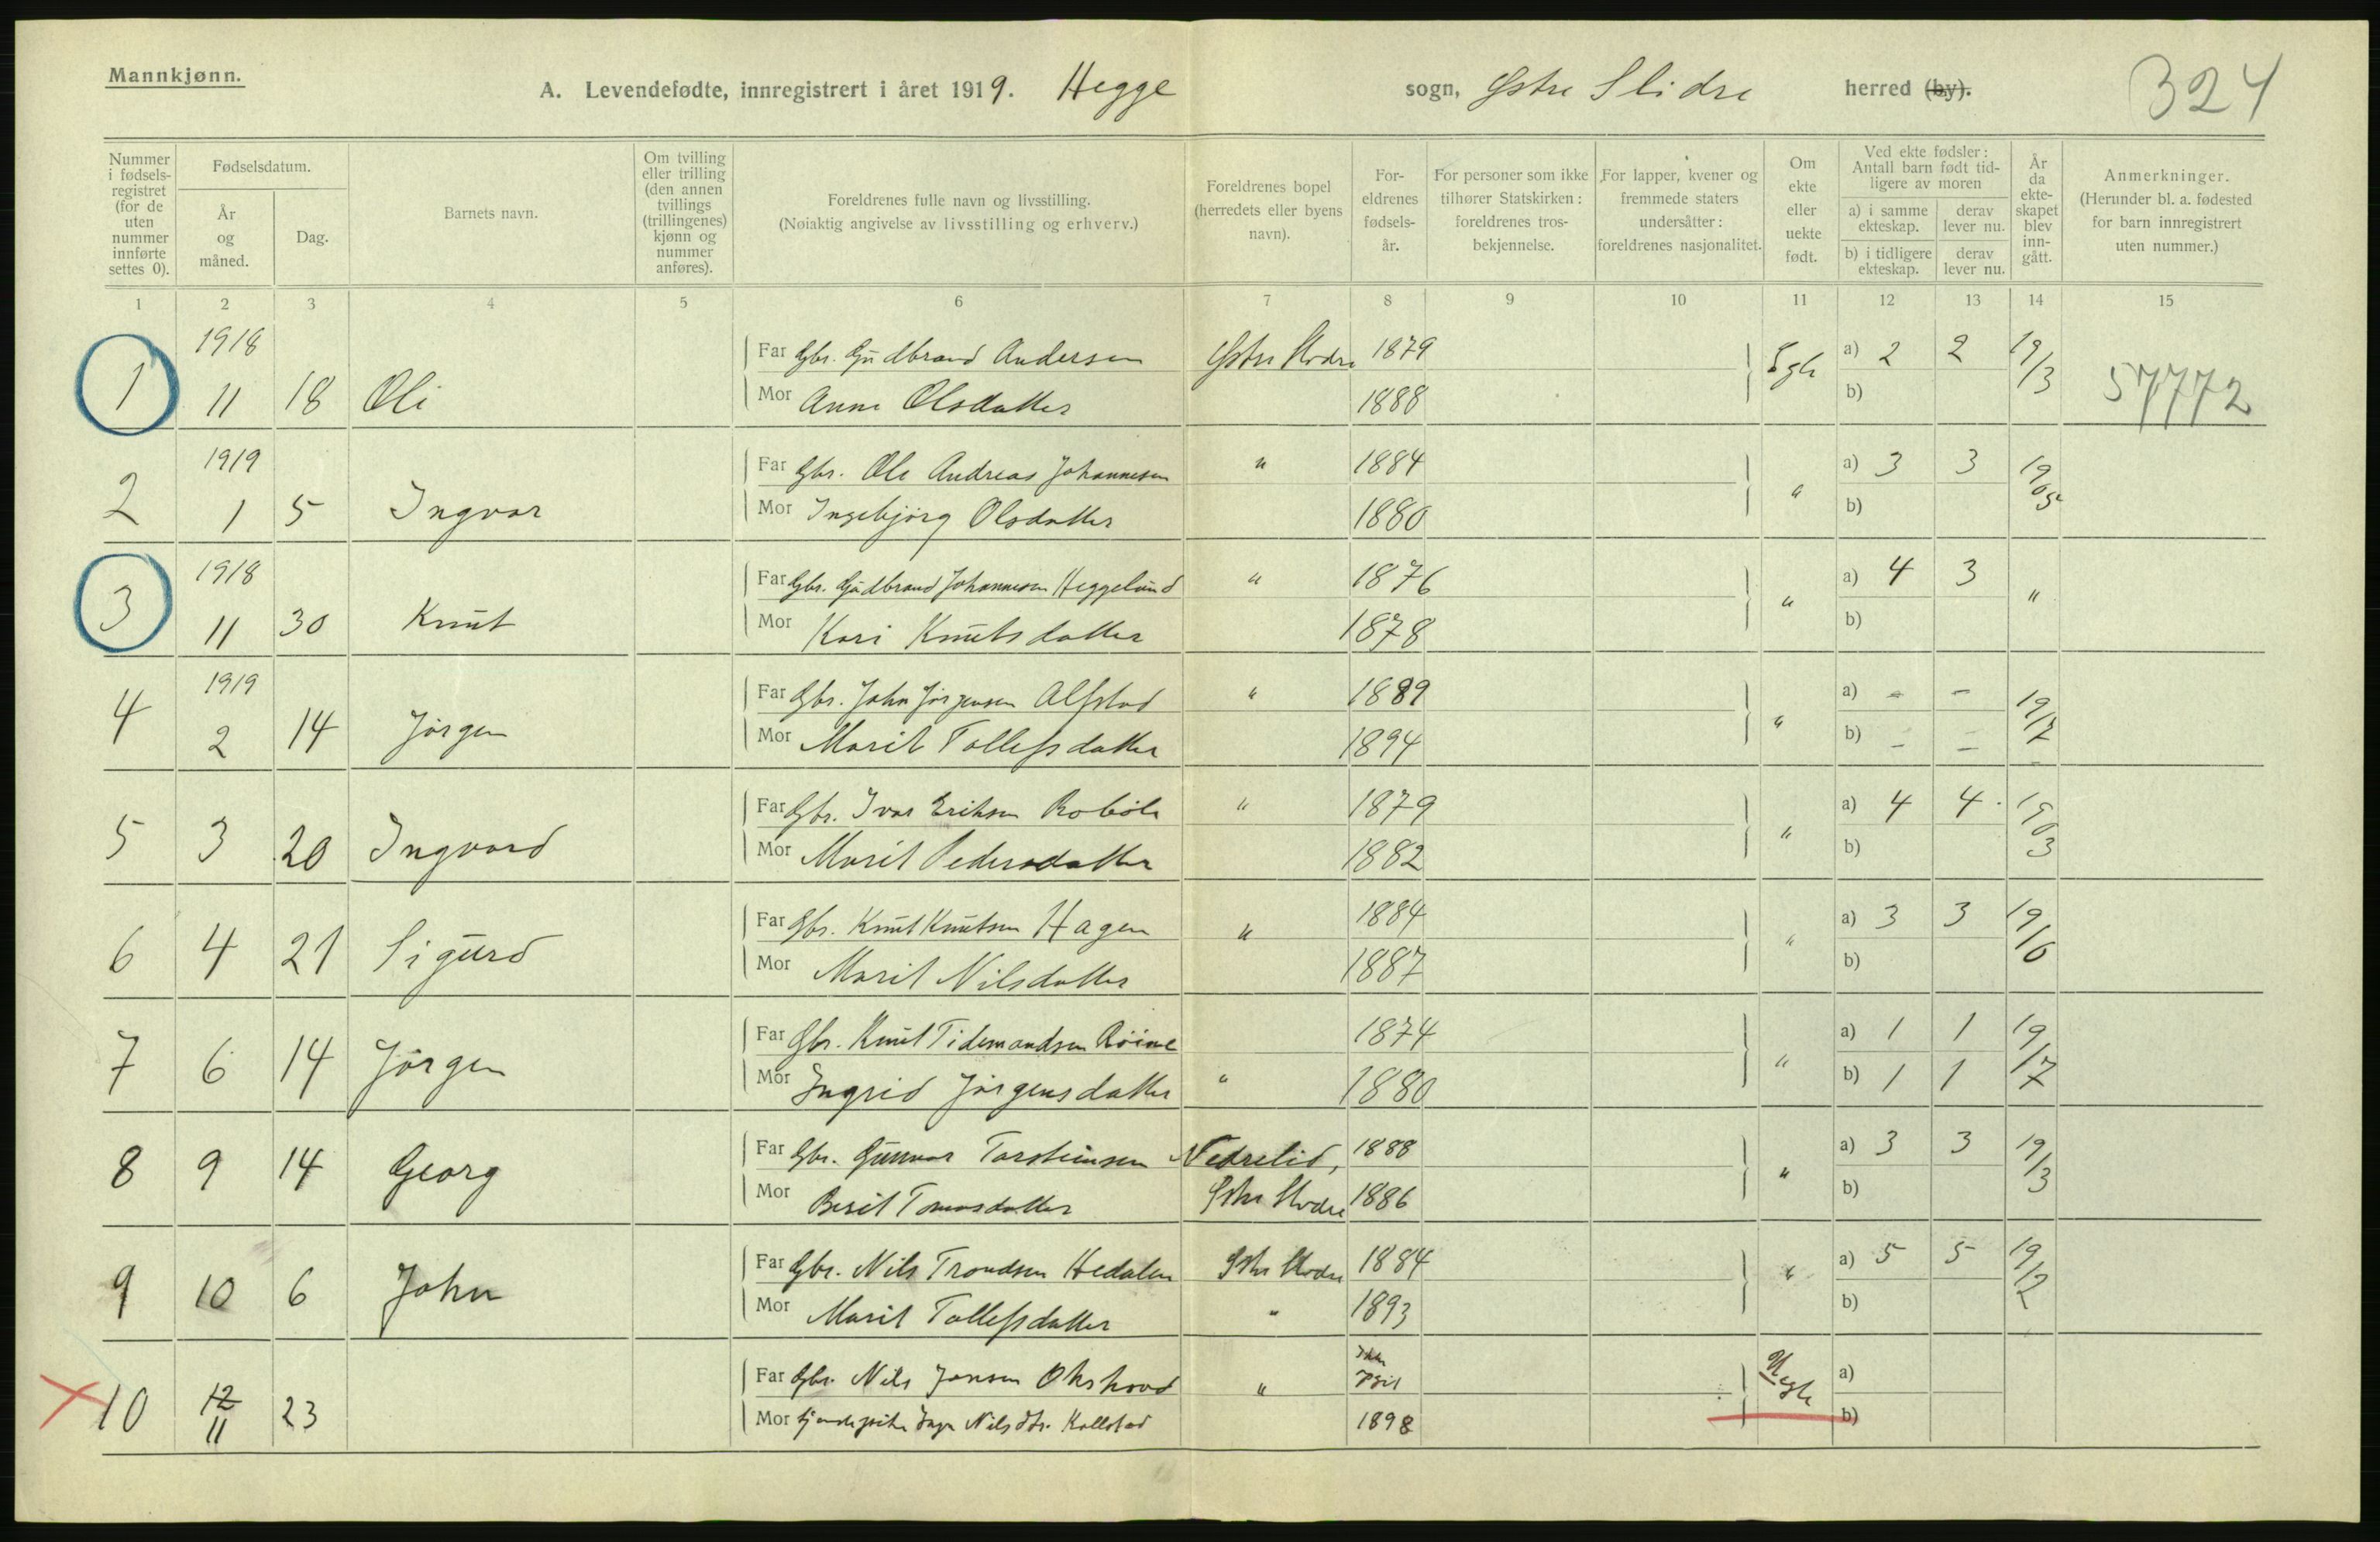 Mannkjønn.
A. Levendefødte, innregistrert i året 1919. Hegge sogn, Østre Slidre herred (by). 324
Nummer i fødselsregistret (for de uten nummer innførte settes 0).
Fødselsdatum.
År og måned.
Dag.
Barnets navn.
Om tvilling eller trilling (den annen tvillings (trillingenes) kjønn og nummer anføres).
Foreldrenes fulle navn og livsstilling.
(Nøiaktig angivelse av livsstilling og erhverv.)
Foreldrenes bopel (herredets eller byens navn).
Foreldrenes fødselsår.
For personer som ikke tilhører Statskirken: foreldrenes trosbekjennelse.
For lapper, kvener og fremmede staters undersåtter: foreldrenes nasjonalitet.
Om ekte eller uekte født.
Ved ekte fødsler: Antall barn født tidligere av moren
a) i samme ekteskap. derav lever nu.
b) i tidligere ekteskap. derav lever nu.
År da ekteskapet blev inngått.
Anmerkninger.
(Herunder bl. a. fødested for barn innregistrert uten nummer.)
1 2 3 4 5 6 7 8 9 10 11 12 13 14 15
1918
Far Gbr. Gudbrand Andersen Østre Slidre 1879 a) 2 2 19/3
1 11 18 Oli Egte 57772
Mor Anne Olsdatter 1888 b)
1919
Far Gbr. Ole Andreas Johannesen " 1884 a) 3 3 1905
2 1 5 Ingvar "
Mor Ingebjørg Olsdatter 1880 b)
1918
Far Gbr. Gudbrand Johannesen Heggelund " 1876 a) 4 3 "
3 11 30 Knut "
Mor Kari Knutsdatter 1878 b)
1919
Far Gbr. John Jørgensen Alfstad " 1889 a) - - 19/7
4 2 14 Jørgen "
Mor Marit Tollefsdatter 1894 b) - -
Far Gbr. Ivar Eriksen Robøle " 1879 a) 4 4 1903
5 3 20 Ingvard "
Mor Marit Pedersdatter 1882 b)
Far Gbr. Knut Knutsen Hagen " 1884 a) 3 3 19/10
6 4 21 Sigurd "
Mor Marit Nilsdatter 1887 b)
Far Gbr. Knut Tidemandsen Röine 1874 a) 1 1 19/17
7 6 14 Jørgen "
Mor Ingrid Jørgensdatter " 1880 b) 1 1
Far Gbr. Gunnar Torsteinsen Nedrelid, 1888 a) 3 3 19/3
8 9 14 Georg "
Mor Berit Tomasdatter Østre Slidre 1886 b)
Far Gbr. Nils Trondsen Hedalen Østre Slidre 1884 a) 5 5 19/12
9 10 6 John "
Mor Marit Tollefsdatter " 1893 b)
Far Gbr. Nils Jonsen Okshovd " a)
10 12 11 23 Uegte
Mor Nilsdtr. Kollstad 1898 b)